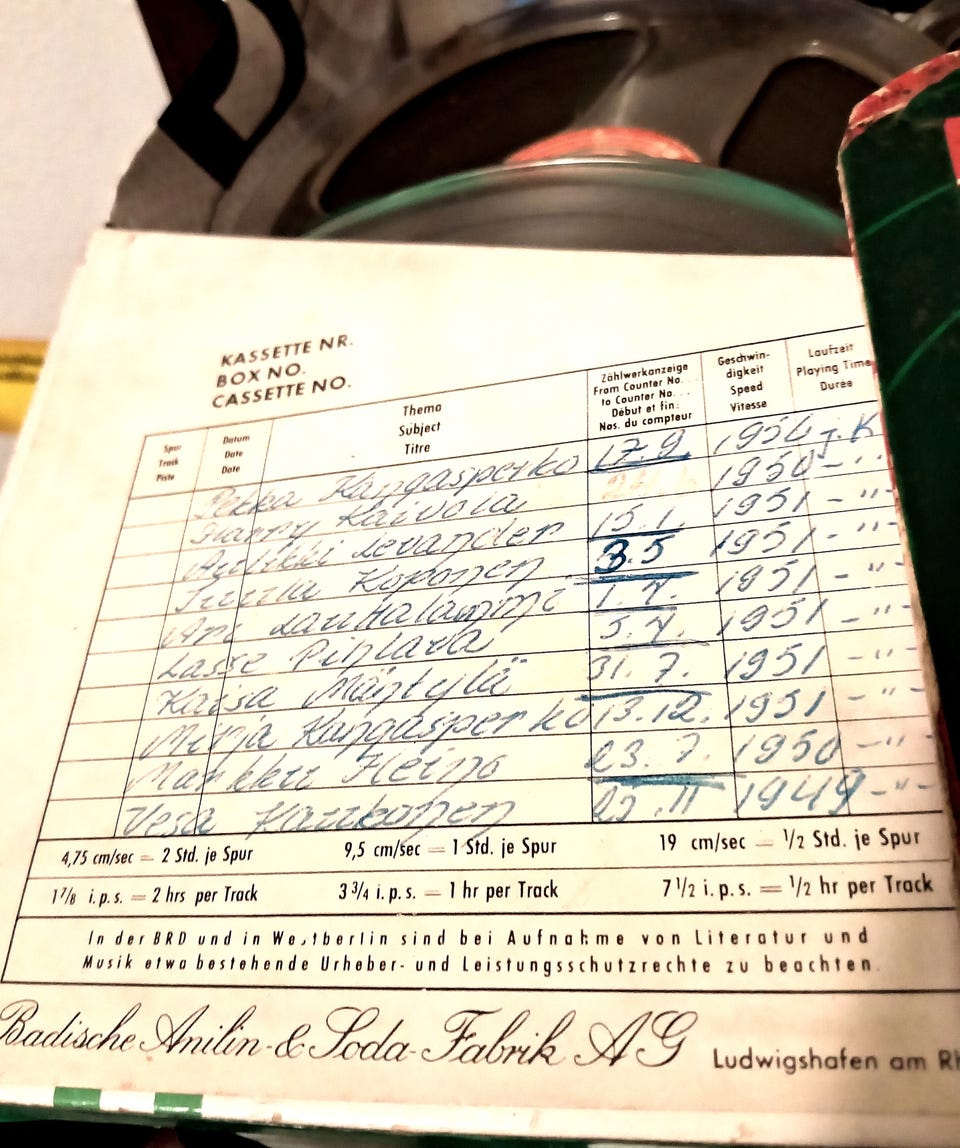 KASSETTE NR.
BOX NO.
CASSETTE NO.
Spur Track Piste
Datum Date Date
Thema Subject Titre
Zählwerkanzeige From Counter No. . . to Counter No. . . Début et fin: Nos. du compteur
Geschwin- digkeit Speed Vitesse
Laufzeit Playing Time Duree
Pekka Kangasperko 17.9. 1950 K
Harry Kaivola 1950 - " -
Levander 15.1. 1951 - " -
Jukka Koponen 3.5 1951 - " -
Ari Lauttalammi 1.7. 1951 - " -
Lasse 5.7. 1951 - " -
Kaisa Mäntylä 31.7. 1951 - " -
Mirja Kangasperko 13.12. 1951 - " -
Markku Heino 23.7. 1950 - " -
Vesa Kaukonen 25.11 1949 - " -
4,75 cm/sec = 2 Std. je Spur 9,5 cm/sec = 1 Std. je Spur 19 cm/sec = ½ Std. je Spur
1⅞ i.p.s. = 2 hrs per Track 3¾ i.p.s. = 1 hr per Track 7½ i.p.s. = ½ hr per Track
In der BRD und in Westberlin sind bei Aufnahme von Literatur und
Musik etwa bestehende Urheber- und Leistungsschutzrechte zu beachten.
Badische Anilin- & Soda-Fabrik AG Ludwigshafen am Rh